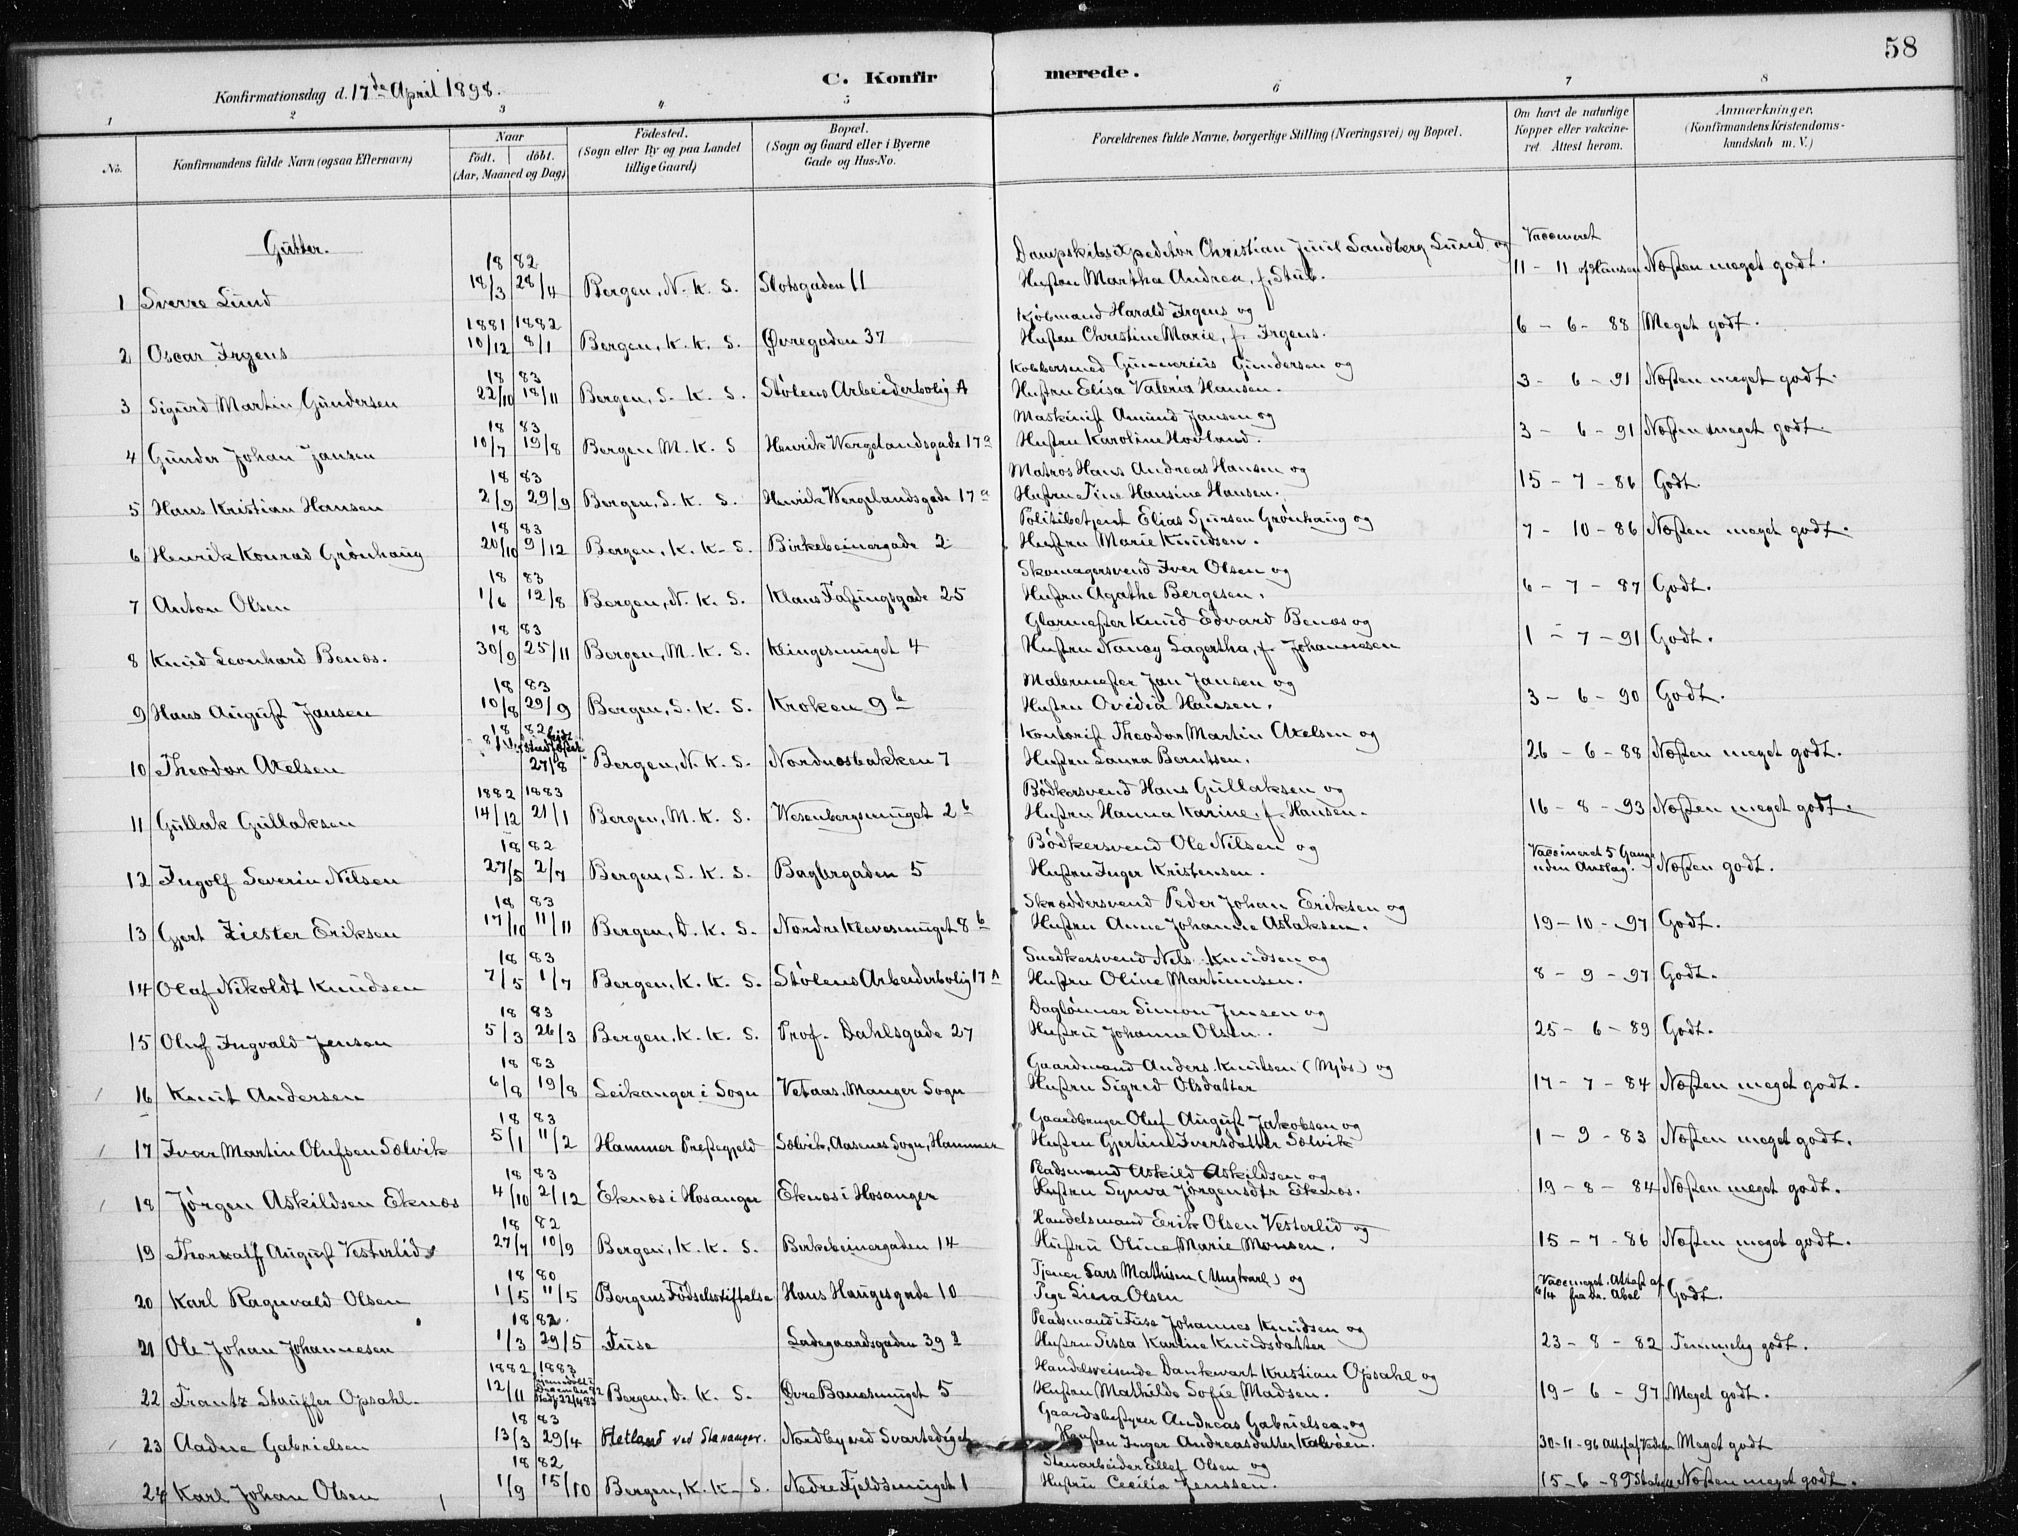 58
C. Konfirmerede.
Konfirmationsdag d. 17de April 1898.
1 2 3 4 5 6 7 8
No. Konfirmandens fulde Navn (ogsaa Efternavn) Naar født. døbt. (Aar, Maaned og Dag) Fødested. (Sogn eller By og paa Landet tillige Gaard) Bopæl. (Sogn og Gaard eller i Byerne Gade og Hus-No. Forældrenes fulde Navne, borgerlige Stilling (Næringsvei) og Bopæl. Om havt de naturlige Kopper eller vakcineret. Attest herom. Anmærkninger, (Konfirmandens Kristendomskundskab m. V.)
Gutter.
18 82 Dampskibsexpeditør Christian Juul Sandberg Lund og Vaccineret
1 Sverre Lund 18/3 28/4 Bergen, N. K. S. Slotsgaden 11 Hustru Martha Andrea, f. Stub. 11 - 11 af Hansen Næsten meget godt.
1881 1882 Kjøbmand Harald Irgens og
2 Oscar Irgens 10/12 8/1 Bergen, K. K. S. Øvregaden 37 Hustru Christine Marie, f. Irgens. 6 - 6 - 88 Meget godt.
18 83 Kobbersmed Gunnerius Gundersen og
3 Sigurd Martin Gundersen 22/10 18/11 Bergen, S. K. S. Stølens Arbeiderbolig A Hustru Elisa Valeria Hansen. 3 - 6 - 91 Næsten meget godt.
18 83 Maskinist Amund Jansen og
4 Gunder Johan Jansen 10/7 19/8 Bergen M. K. S Henrik Wergelandsgade 17a Hustru Karoline Hovland. 3 - 6 - 91 Næsten meget godt.
18 83 Matros Hans Andreas Hansen og
5 Hans Kristian Hansen 2/9 29/9 Bergen, S. K. S. Henrik Wergelandsgade 17a Hustru Tine Hansine Hansen. 15 - 7 - 86 Godt.
18 83 Politibetjent Elias Sjursen Grønhaug og
6 Henrik Konrad Grønhaug 20/10 9/12 Bergen, K. K. S. Birkebeinergade 2 Hustru Marie Knudsen. 7 - 10 - 86 Næsten meget godt.
18 83 Skomagersvend Iver Olsen og
7 Anton Olsen 1/6 12/8 Bergen, N. K. S. Klaus Fastingsgade 25 Hustru Agathe Bergesen. 6 - 7 - 87 Godt.
18 83 Glarmester Knud Edvard Benæs og
8 Knud Leonhard Benæs. 30/9 25/11 Bergen, M. K. S. Klingesmuget 4 Hustru Nancy Lagertha, f. Johannesen 1 - 7 - 91 Godt.
18 83 Malermester Jan Jansen og
9 Hans August Jansen 10/8 29/9 Bergen, S. K. S. Kroken 9b Hustru Ovidia Hansen. 3 - 6 - 90 Godt.
18 82 Kontorist Theodor Martin Axelsen og
10 Theodor Axelsen 27/8 Bergen, N. K. S. Nordnæsbakken 7 Hustru Laura Berntsen. 26 - 6 - 88 Næsten meget godt.
1882 1883 Bødkersvend Hans Gullaksen og
11 Gullak Gullaksen 14/12 21/1 Bergen, M. K. S. Wesenbergsmuget 2b Hustru Hanna Karine, f. Hansen. 16 - 8 - 93 Næsten meget godt.
18 82 Bødkersvend Ole Nilsen og Vaccineret 5 Gange
12 Ingolf Severin Nilsen 27/5 2/7 Bergen, S. K. S. Baglergaden 5 Hustru Inger Kristensen. uden Anslag. Næsten godt.
18 83 Skræddersvend Peder Johan Eriksen og
13 Gjert Ziester Eriksen 17/10 11/11 Bergen, D. K. S. Nordre Klevesmuget 8b Hustru Anne Johanne Aslaksen. 19 - 10 - 97 Godt.
18 83 Snedkersvend Nels Knudsen og
14 Olaf Nikoldt Knudsen 7/5 1/7 Bergen, K. K. S. Stølens Arbeiderbolig 17A Hustru Oline Martinusen. 8 - 9 - 97 Godt.
18 83 Daglønner Simon Jensen og
15 Oluf Ingvald Jensen 5/3 26/3 Bergen, K. K. S. Prof. Dahlsgade 27 Hustru Johanne Olsen. 25 - 6 - 89 Godt.
18 83 Gaardmand Anders Knutsen (Mjøs) og
16 Knut Andersen 6/8 19/8 Leikanger i Sogn Vetaas, Manger Sogn Hustru Sigrid Olsdatter 17 - 7 - 84 Næsten meget godt.
18 83 Gaardbruger Oluf August Jakobsen og
17 Ivar Martin Olufsen Solvik 5/1 11/2 Hammer Prestegjeld Solvik, Aasenes Sogn, Hammer Hustru Gjertine Iversdatter Solvik 1 - 9 - 83 Næsten meget godt.
18 83 Pladsmand Askild Askildsen og
18 Jørgen Askildsen Eknæs 4/10 2/12 Eknæs i Hosanger Eknæs i Hosanger Hustru Synva Jørgensdtr Eknæs. 19 - 8 - 84 Næsten meget godt.
18 82 Handelsmand Erik Olsen Vesterlid og
19 Thorvalf August Vesterlid 27/7 10/9 Bergen, K. K. S. Birkebeinergaden 14 Hustru Oline Marie Monsen. 15 - 7 - 86 Næsten meget godt.
18 80 Tjener Lars Mathisen (Ungkarl) og Vaccineret. Attest af
20 Karl Ragnvald Olsen 1/5 11/5 Bergens Fødselsstiftelse Hans Haugesgade 10 Pige Lina Olsen 6/4 fra Dr. Abel Godt.
18 82. Pladsmand i Fuse Johannes Knudsen og
21 Ole Johan Johannesen 1/3 29/5 Fuse Ladegaardsgaden 39a Hustru Sissa Karine Knudsdatter 23 - 8 - 82 Temmelig godt.
1882 1883 Handelsreisende Dankwart Kristian Opsahl og
22 Frantz Stauffer Opsahl. 12/11 Bergen, D. K. S. Øvre Banesmuget 5 Hustru Mathilde Sofie Madsen. 19 - 6 - 97 Meget godt.
18 83 Gaardsbestyrer Andreas Gabrielsen og
23 Aadne Gabrielsen 13/3 29/4 Hetland ved Stavanger. Nordby ved Svartediget Hustru Inger Andreasdatter Kalvøen. 30-11-96 Meget godt
18 82 Stenarbeider Ellef Olsen og
24 Karl Johan Olsen 1/9 15/10 Bergen, K. K. S. Nedre Fjeldsmuget 1 Hustru Cecilia Jenssen. 15 - 6 - 89 Næsten meget godt.